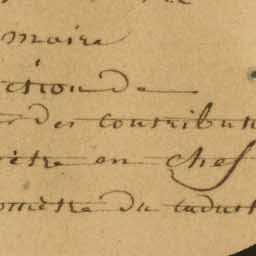 maire
ction de
des contribut
ètre en chef
omètre du cadast